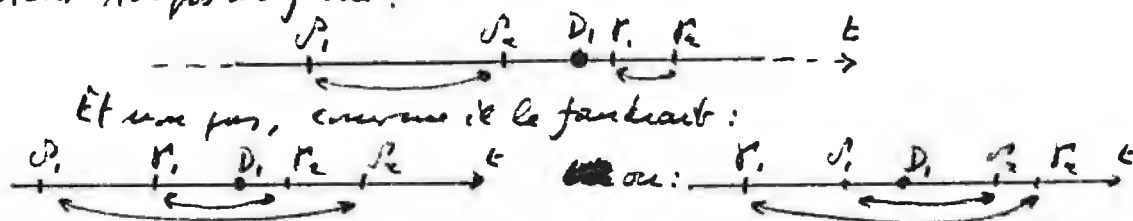 P₁ P₂ D₁ r₁ r₂ t
Et non pas, comme il le faudrait :
P₁ r₁ D₁ r₂ P₂ t ou : r₁ P₁ D₁ P₂ r₂ t